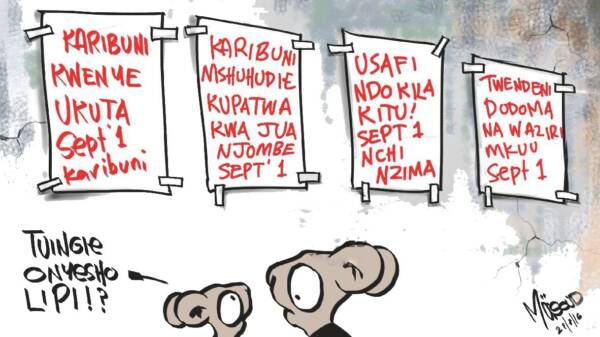 KARIBUNI
KWENYE
UKUTA
Sept'1
karibuni
KARIBUNI
MSHUHUDIE
KUPATWA
KWA JUA
NJOMBE
SEPT' 1
USAFI
NDO KILA
KITU!
SEPT 1
NCHI
NZIMA
TWENDENI
DODOMA
NA WAZIRI
MKUU
Sept 1
TUINGIE
ONYESHO
LIPI!!?